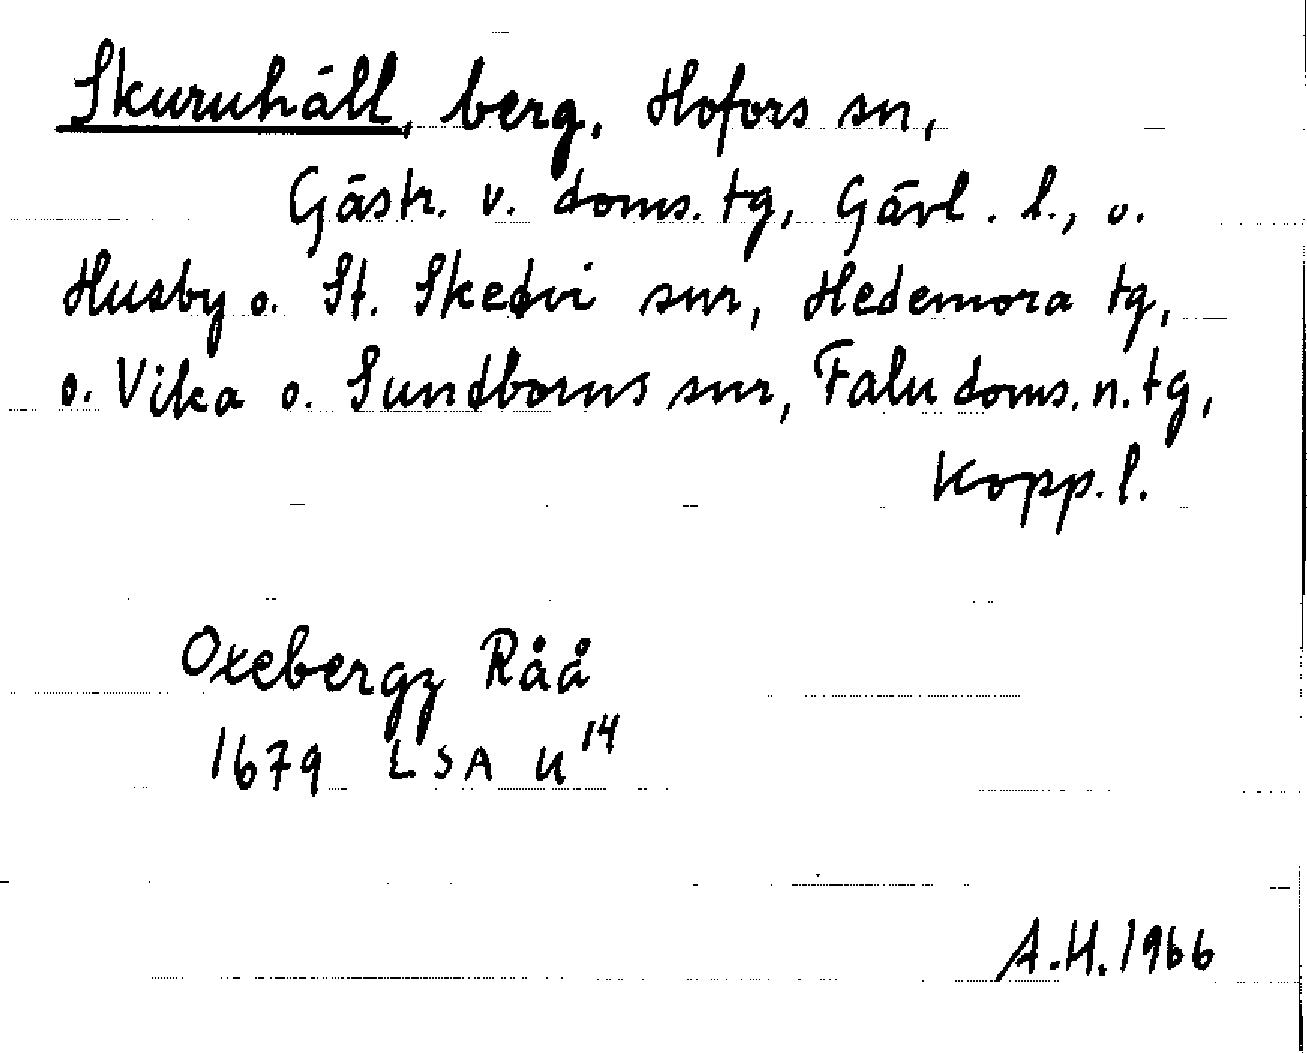 Skuruhäll, berg, Hofors sn,
Gästr. v. doms. tg, Gävl. l., o.
Husby o. St. Skedvi snr, Hedemora tg,
o. Vika o. Sundborns snr, Falu doms. n. tg,
Kopp. l.
Oxebergz Råå
1679 LSA U¹⁴
A.H. 1966